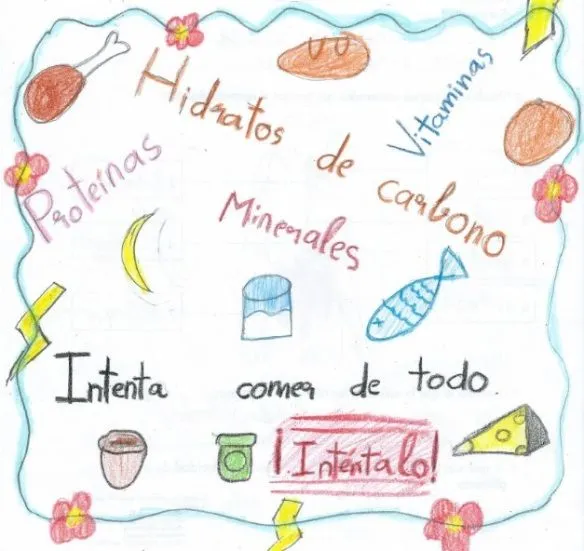 Hidratos de carbono
Vitaminas
Proteínas
Minerales
Intenta comer de todo.
¡Inténtalo!